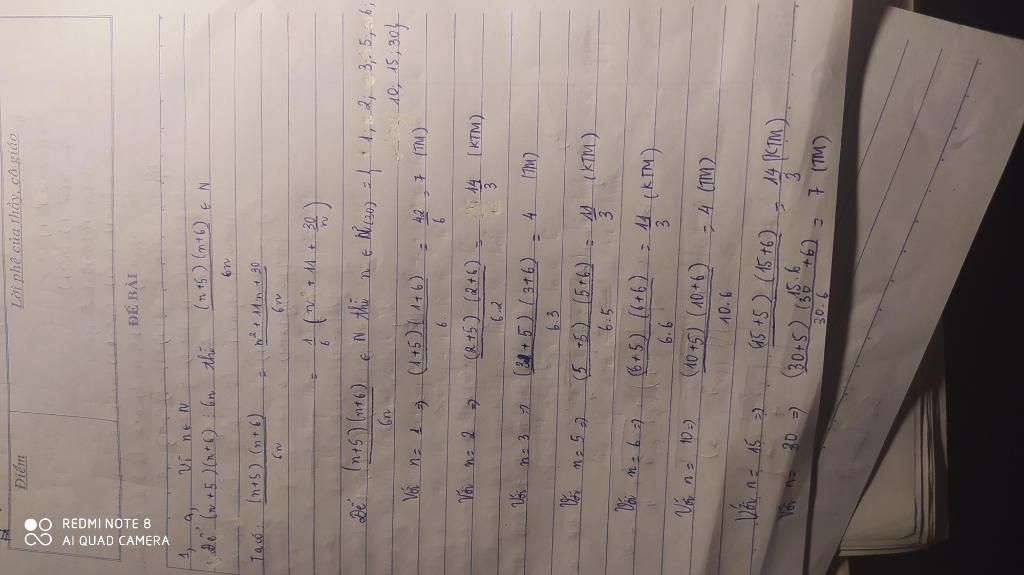 Điểm
Lời phê của thầy, cô giáo
ĐỀ BÀI
1, a, Vì n ∈ N
Để (n+5)(n+6) ⋮ 6n thì (n+5)(n+6)/6n ∈ N
Ta có: (n+5)(n+6)/6n = n² + 11n + 30/6n
= 1/6 (n + 11 + 30/n)
Để (n+5)(n+6)/6n ∈ N thì n ∈ Ư(30) = { 1, 2, 3, 5, 6,
10, 15, 30}
Với n = 1 ⇒ (1+5)(1+6)/6 = 42/6 = 7 (TM)
Với n = 2 ⇒ (2+5)(2+6)/6.2 = 14/3 (KTM)
Với n = 3 ⇒ (3+5)(3+6)/6.3 = 4 (TM)
Với n = 5 ⇒ (5+5)(5+6)/6.5 = 11/3 (KTM)
Với n = 6 ⇒ (6+5)(6+6)/6.6 = 11/3 (KTM)
Với n = 10 ⇒ (10+5)(10+6)/10.6 = 4 (TM)
Với n = 15 ⇒ (15+5)(15+6)/15.6 = 14/3 (KTM)
Với n = 30 ⇒ (30+5)(30+6)/30.6 = 7 (TM)
REDMI NOTE 8
AI QUAD CAMERA